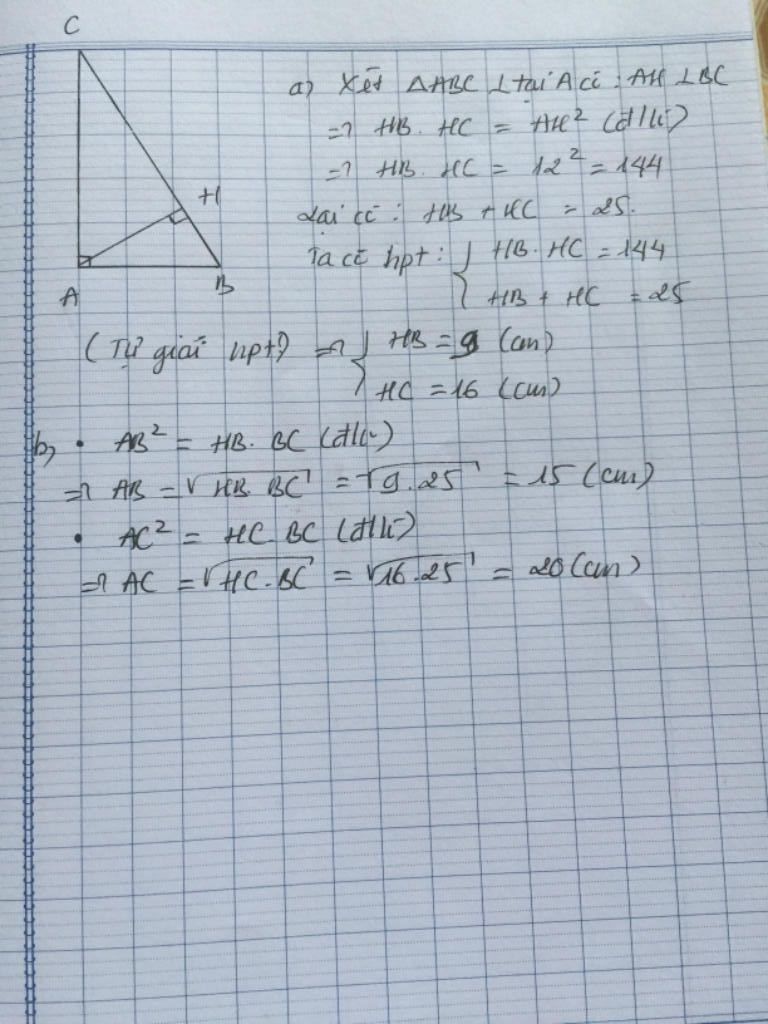 C
H
A
B
a) Xét ΔABC ⊥ tại A có : AH ⊥ BC
=> HB . HC = AH² (đ/lí)
=> HB . HC = 12² = 144
Lại có : HB + HC = 25.
Ta có hpt : { HB . HC = 144
HB + HC = 25
(Tự giải hpt) => { HB = 9 (cm)
HC = 16 (cm)
b, • AB² = HB . BC (đlí)
=> AB = √HB . BC = √9 . 25 = 15 (cm)
• AC² = HC . BC (đlí)
=> AC = √HC . BC = √16 . 25 = 20 (cm)